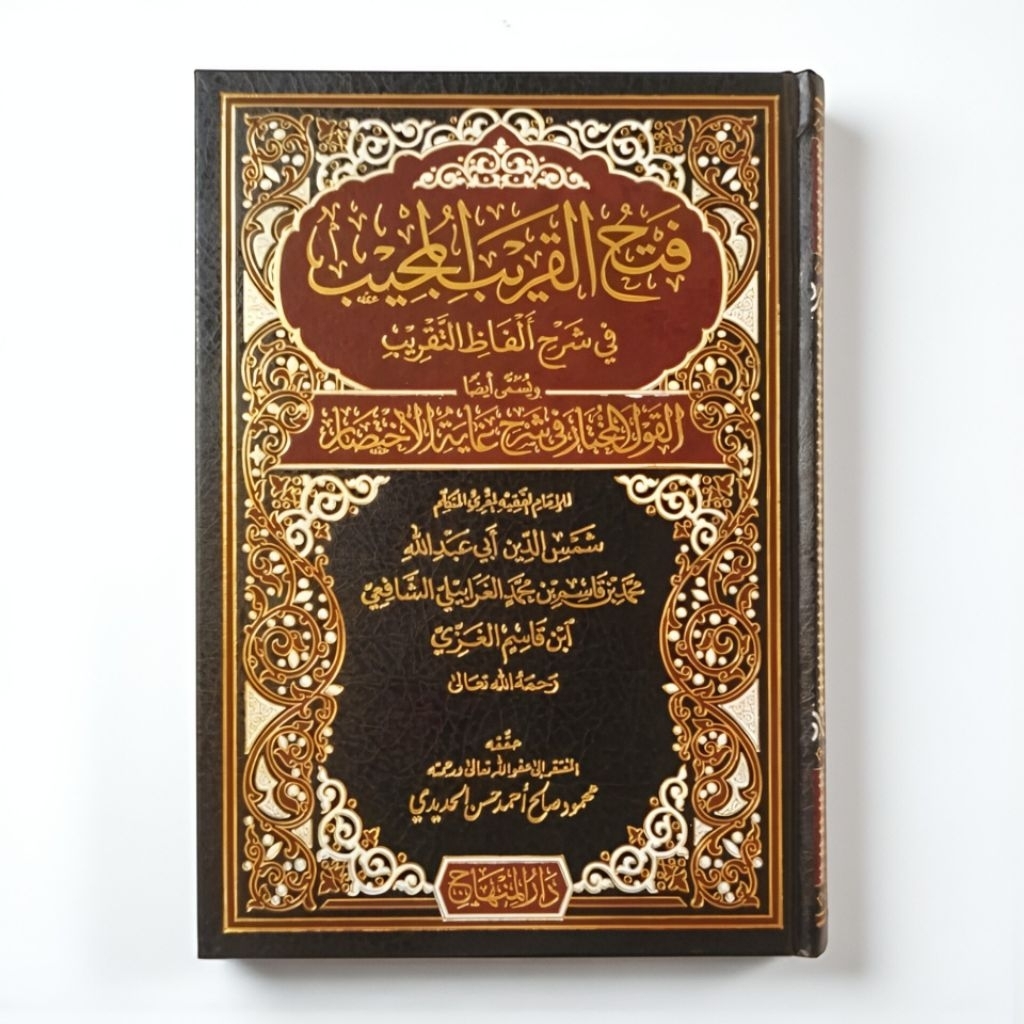 فَتْحُ القَرِيْبِ المُجِيْبِ
في شَرْحِ أَلْفَاظِ التَّقْرِيْبِ
ويُسَمَّى أيضًا
القول المختار في شرح غاية الاختصار
للإمام الفقيه المقرئ المتكلم
شَمْسِ الدِّين أَبي عَبْدِ اللهِ
مُحَمَّدِ بْنِ قَاسِمِ بْنِ مُحَمَّدٍ الغَرَابِيْلِيّ الشَّافِعِيّ
ابْنِ قَاسِمٍ الغَزِّيّ
رَحِمَهُ اللهُ تَعَالَى
حقَّقه
المفتقر إلى عفو الله تعالى ورحمته
محمود صالح أحمد حسن الحديدي
دَارُ المِنْهَاج